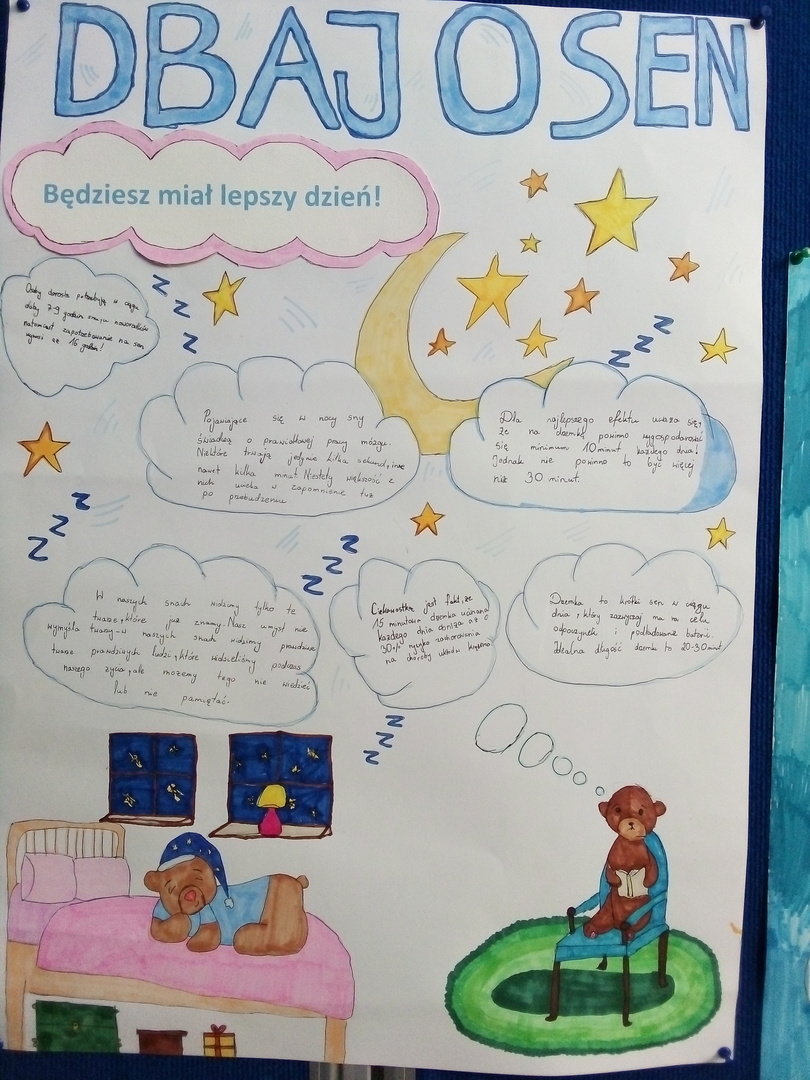 DBAJ O SEN
Będziesz miał lepszy dzień!
Osoby dorosłe potrzebują w ciągu
doby 7-9 godzin snu, u noworodków
natomiast zapotrzebowanie na sen
wynosi aż 16 godzin!
Z Z Z
Z Z Z
Pojawiające się w nocy sny
świadczą o prawidłowej pracy mózgu.
Niektóre trwają jedynie kilka sekund, inne
nawet kilka minut. Niestety większość z
nich ucieka w zapomnienie tuż
po przebudzeniu
Dla najlepszego efektu uważa się,
że na drzemkę powinno wygospodarować
się minimum 10 minut każdego dnia!
Jednak nie powinno to być więcej
niż 30 minut.
Z Z Z
Z Z Z
W naszych snach widzimy tylko te
twarze, które już znamy. Nasz umysł nie
wymyśla twarzy-w naszych snach widzimy prawdziwe
twarze prawdziwych ludzi, które widzieliśmy podczas
naszego życia, ale możemy tego nie wiedzieć
lub nie pamiętać.
Ciekawostką jest fakt, że
15 minutowa drzemka ucinana
każdego dnia obniża aż o
30% ryzyko zachorowania
na choroby układu krążenia
Drzemka to krótki sen w ciągu
dnia, który zazwyczaj ma na celu
odpoczynek i podładowanie baterii.
Idealna długość drzemki to 20-30 minut
Z Z Z